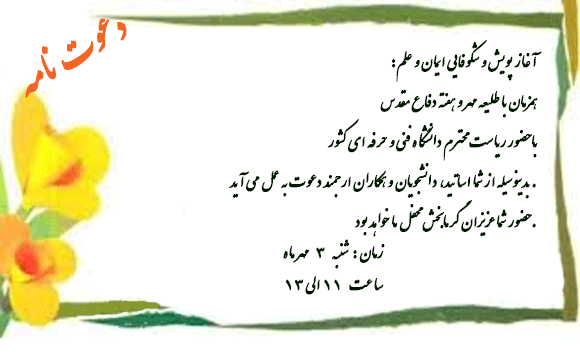 دعوت نامه
آغاز پویش و شکوفایی ایمان و علم:
همزمان با طلیعه مهر و هفته دفاع مقدس
با حضور ریاست محترم دانشگاه فنی و حرفه ای کشور
.بدینوسیله از شما اساتید، دانشجویان و همکاران ارجمند دعوت به عمل می آید
.حضور شما عزیزان گرمابخش محفل ما خواهد بود
زمان: شنبه ۳ مهرماه
ساعت ۱۱ الی ۱۳